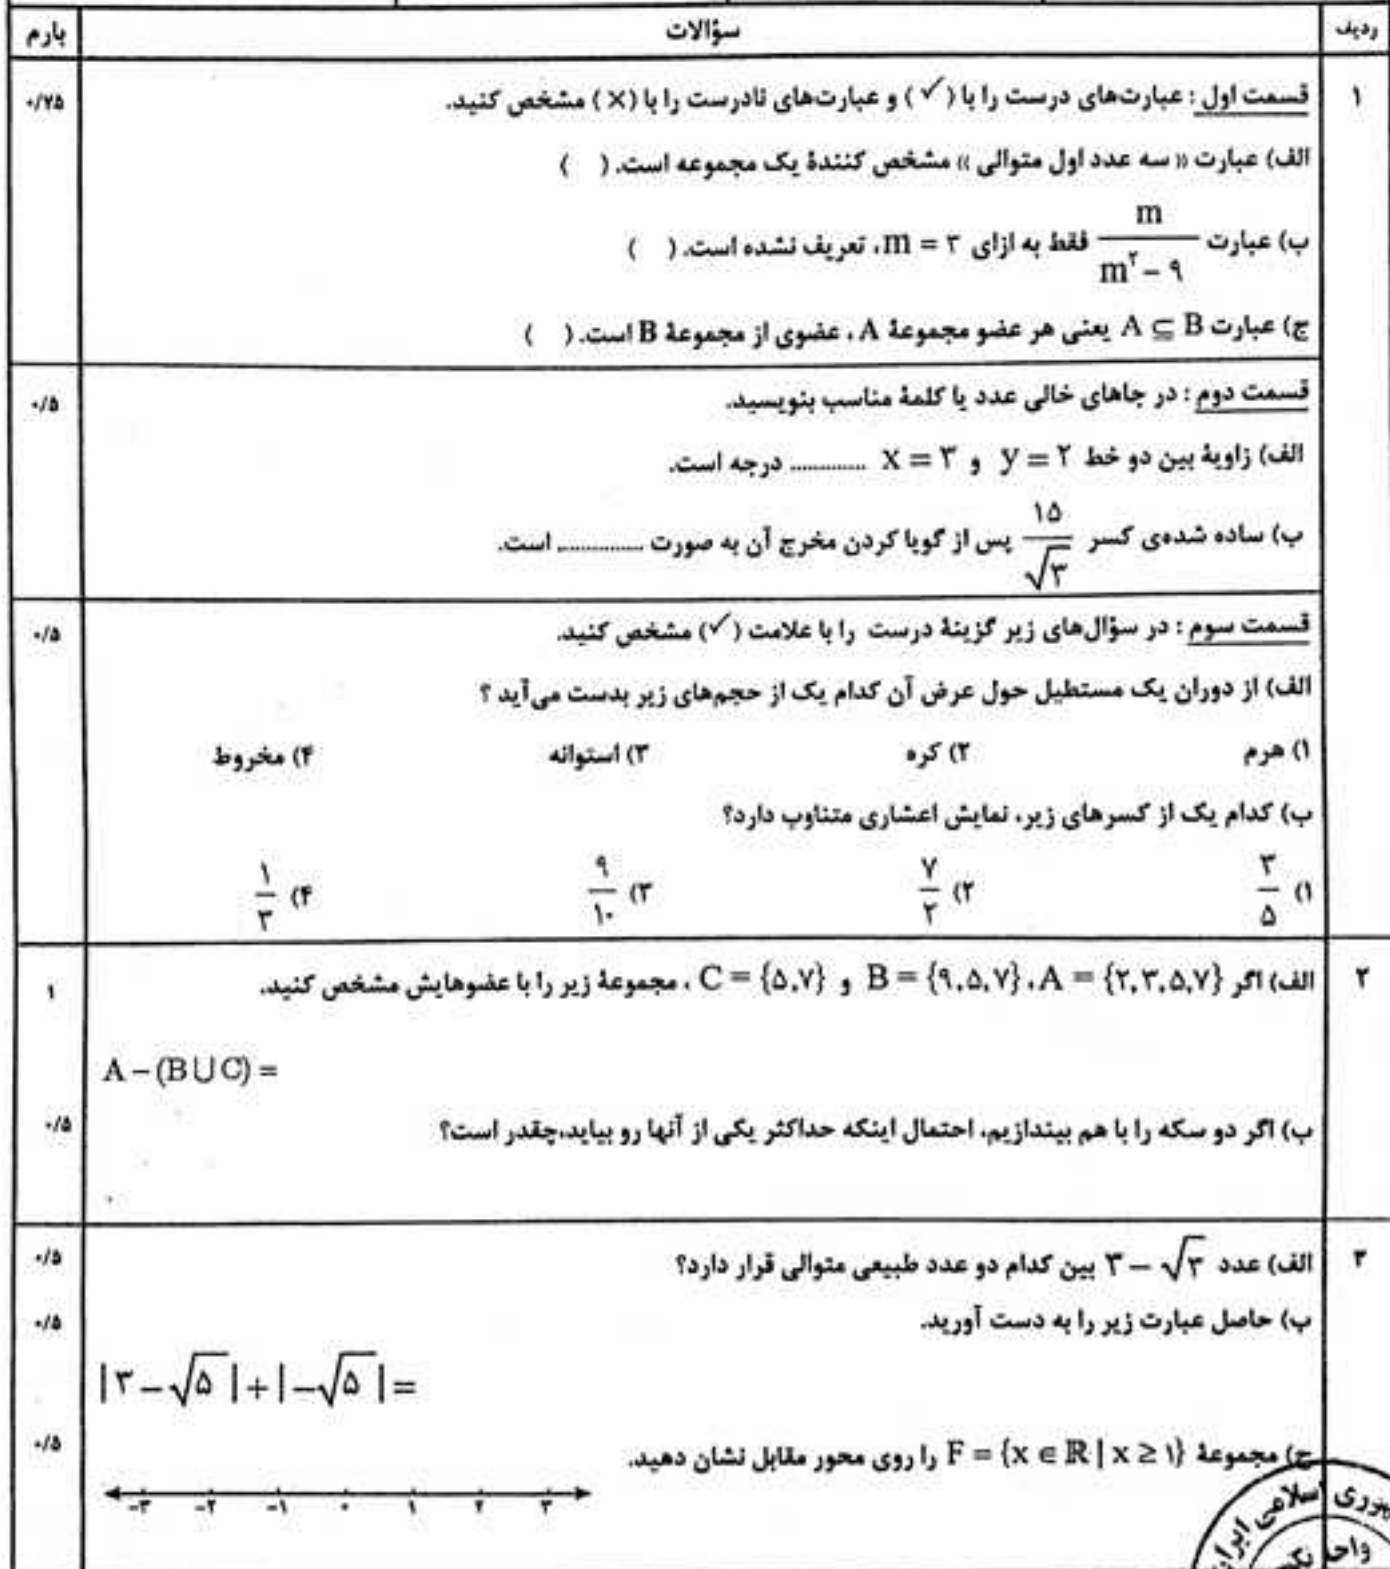 ردیف سؤالات بارم
۱ قسمت اول : عبارت‌های درست را با ( ✓ ) و عبارت‌های نادرست را با ( × ) مشخص کنید. ۰/۷۵
الف) عبارت « سه عدد اول متوالی » مشخص کنندهٔ یک مجموعه است. ( )
ب) عبارت m/(m^۲ − ۹) فقط به ازای m = ۳، تعریف نشده است. ( )
ج) عبارت A ⊆ B یعنی هر عضو مجموعهٔ A ، عضوی از مجموعهٔ B است. ( )
قسمت دوم : در جاهای خالی عدد یا کلمهٔ مناسب بنویسید. ۰/۵
الف) زاویهٔ بین دو خط y = ۲ و x = ۳ ............. درجه است.
ب) ساده شده‌ی کسر ۱۵/√۳ پس از گویا کردن مخرج آن به صورت ............... است.
قسمت سوم : در سؤال‌های زیر گزینهٔ درست را با علامت (✓) مشخص کنید. ۰/۵
الف) از دوران یک مستطیل حول عرض آن کدام یک از حجم‌های زیر بدست می‌آید ؟
۱) هرم ۲) کره ۳) استوانه ۴) مخروط
ب) کدام یک از کسرهای زیر، نمایش اعشاری متناوب دارد؟
۱) ۳/۵ ۲) ۷/۲ ۳) ۹/۱۰ ۴) ۱/۳
۲ الف) اگر A = {۲,۳,۵,۷}، B = {۹,۵,۷} و C = {۵,۷} ، مجموعهٔ زیر را با عضوهایش مشخص کنید. ۱
A − (B ∪ C) =
ب) اگر دو سکه را با هم بیندازیم، احتمال اینکه حداکثر یکی از آنها رو بیاید،چقدر است؟ ۰/۵
۳ الف) عدد ۳ − √۳ بین کدام دو عدد طبیعی متوالی قرار دارد؟ ۰/۵
ب) حاصل عبارت زیر را به دست آورید. ۰/۵
|۳ − √۵| + |−√۵| =
ج) مجموعهٔ F = {x ∈ ℝ | x ≥ ۱} را روی محور مقابل نشان دهید. ۰/۵
−۳ −۲ −۱ ۰ ۱ ۲ ۳
اسلامی ایران
واحد